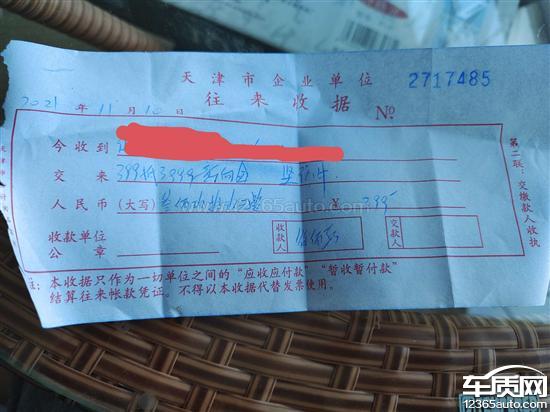 天津市企业单位 2717485
往来收据 №
2021年11月10日
今收到
交来 399抵3999
人民币(大写) ¥ 399
收款单位 公章 收款人 交款人
注:本收据只作为一切单位之间的“应收应付款”“暂收暂付款”
结算往来帐款凭证。不得以本收据代替发票使用。
第二联:交缴款人收执
www.12365auto.com
车质网
12365auto.com